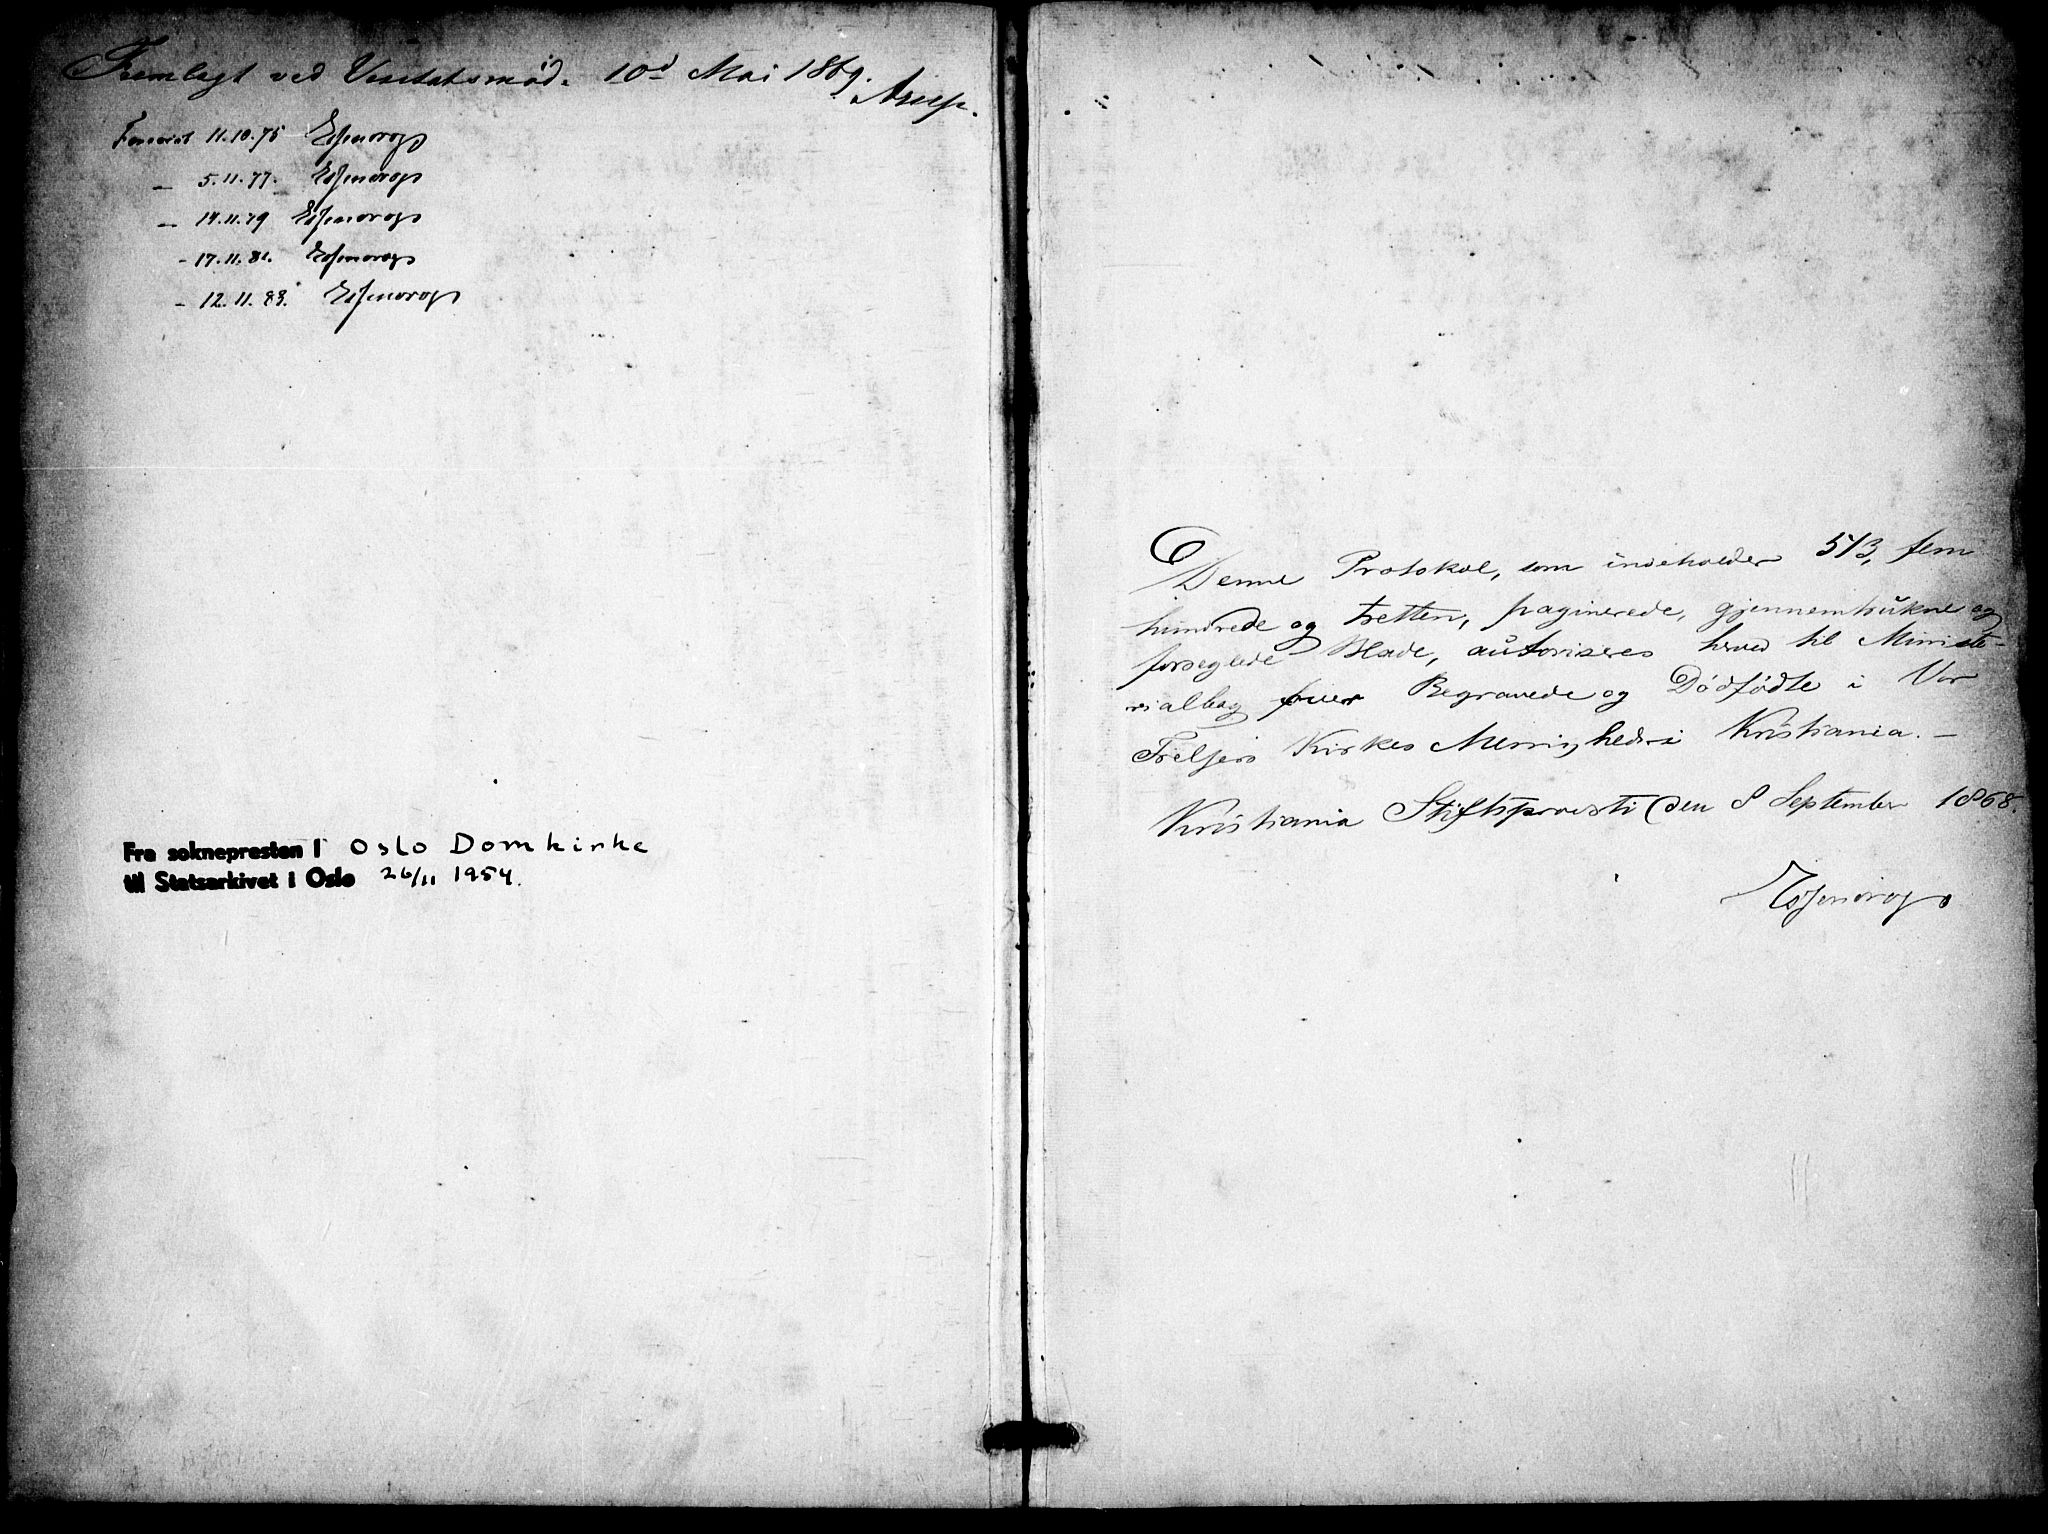 Fremlagt ved Visitatsmød. 10d Mai 1869. Arup.
11.10.75 Essendrop
— 5.11.77. Essendrop
— 14.11.79 Essendrop
- 17.11.81. Essendrop
- 12.11.83. Essendrop
Fra soknepresten i Oslo Domkirke
til Statsarkivet i Oslo 26/11 1954.
Denne Protokol, som indeholder 513, fem
hundrede og tretten, paginerede, gjennemtrukne og
forseglede Blade, autoriseres herved til Ministe-
rialbog over Begravede og Dødfødte i Vor
Frelsers Kirkes Menighed i Kristiania. —
Kristiania Stiftsprovsti den 8 September 1868.
Essendrop